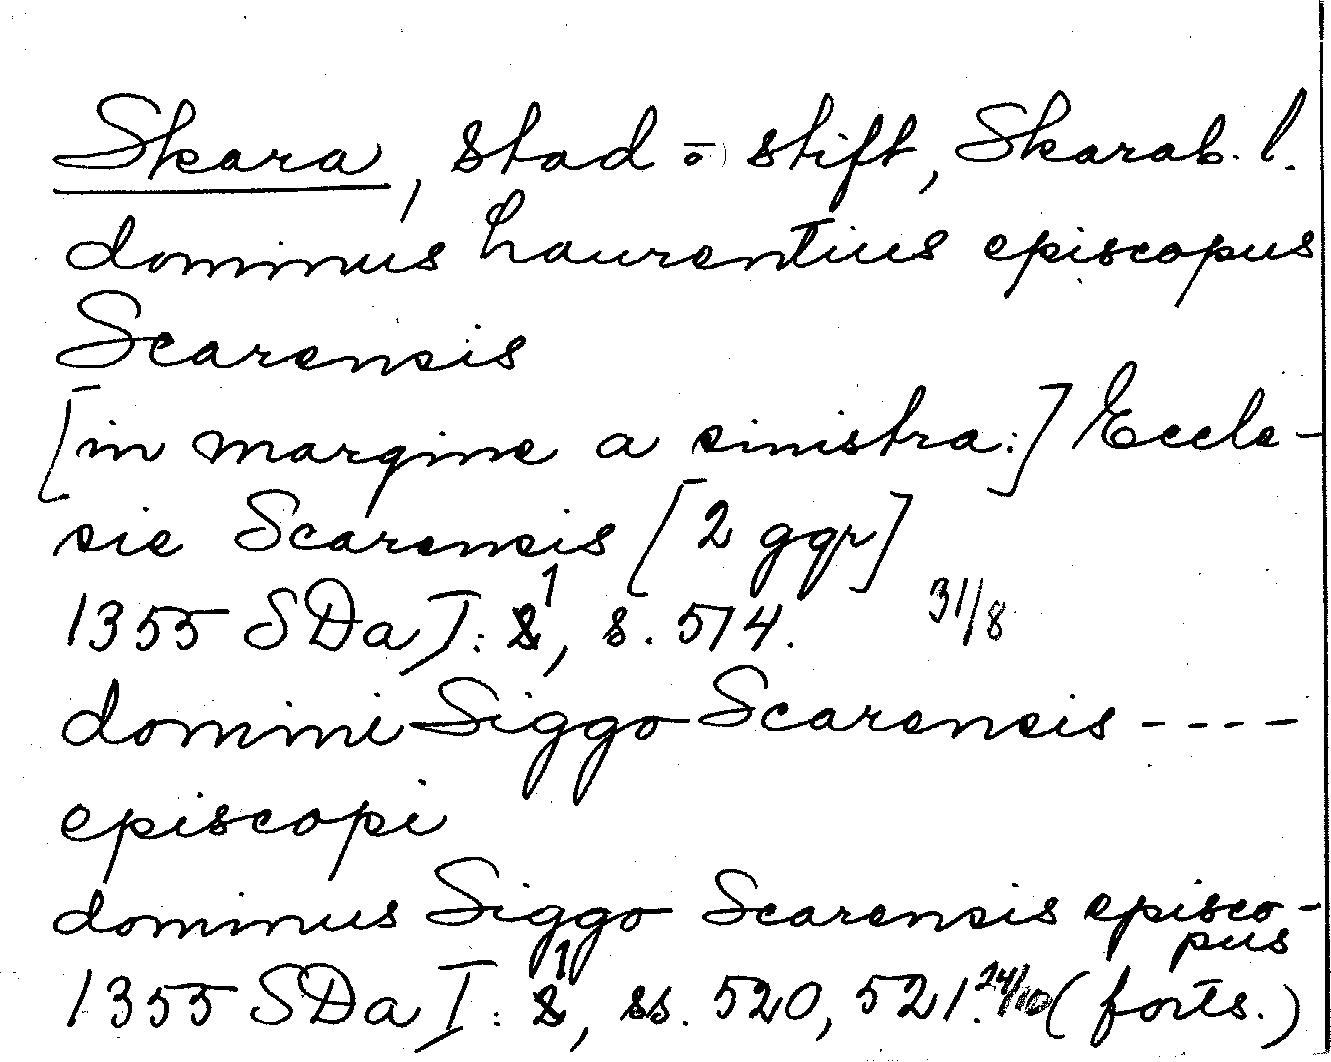 Skara, stad o stift, Skarab. l.
dominus Laurentius episcopus
Scarensis
[in margine a sinistra:] Eccle-
sie Scarensis [2 ggr]
1355 SDa I: 1, s. 514. 31/8
domini Siggo Scarensis ----
episcopi
dominus Siggo Scarensis episco-
pus
1355 SDa I: 1, ss. 520, 521. 24/10 (forts.)